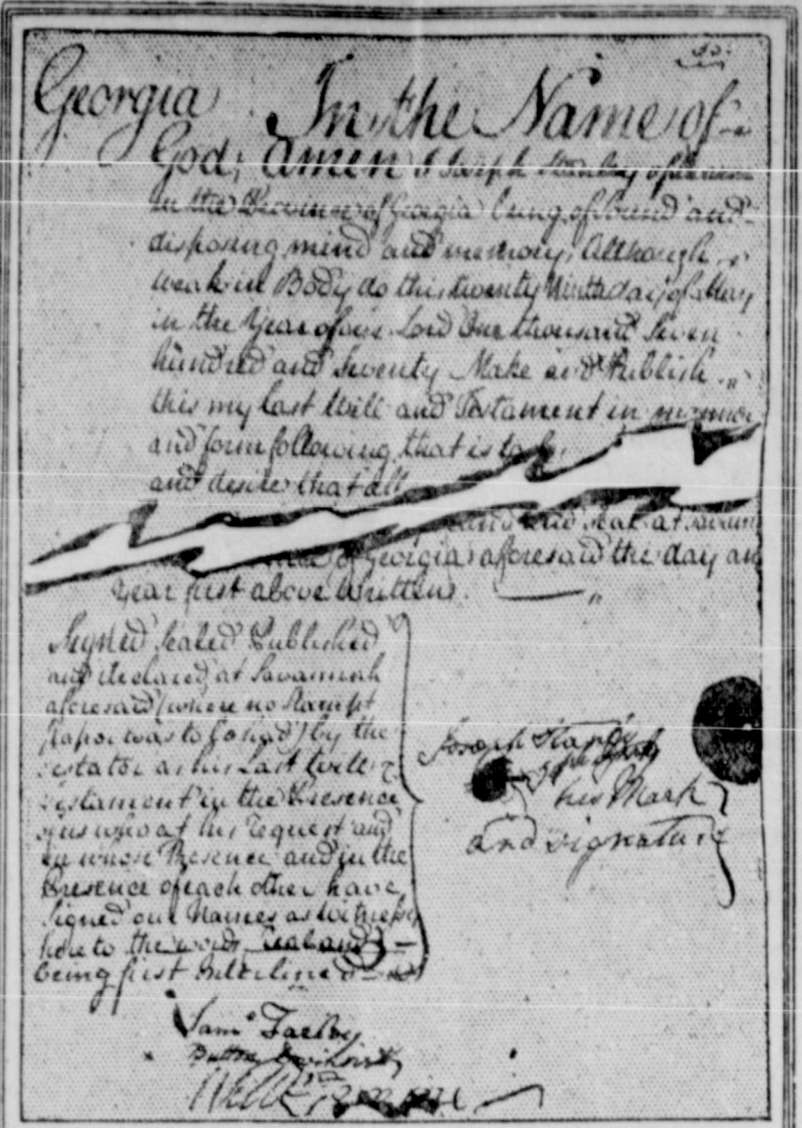 Georgia In the Name of
God, Amen I Joseph Stanley of
in the Province of Georgia being of sound and
disposing mind and memory, Although
weak in Body do this twenty Ninth day of May
in the Year of our Lord One thousand Seven
hundred and Seventy Make and Publish
this my last Will and Testament in manner
and form following that is to
and desire that all
and seal at
of Georgia aforesaid the day an
Year first above Written.
Signed Sealed Published
and declared at Savannah
aforesaid (where no Stampt
paper was to be had) by the
testator as his Last Will &
testament in the Presence
of us who at his request and
in whose Presence and in the
Presence of each other have
Signed our Names as Witnesses
hereto the words Seal and
being first Interlined
Joseph
his Mark
and signature
Saml
Button Gwinnett